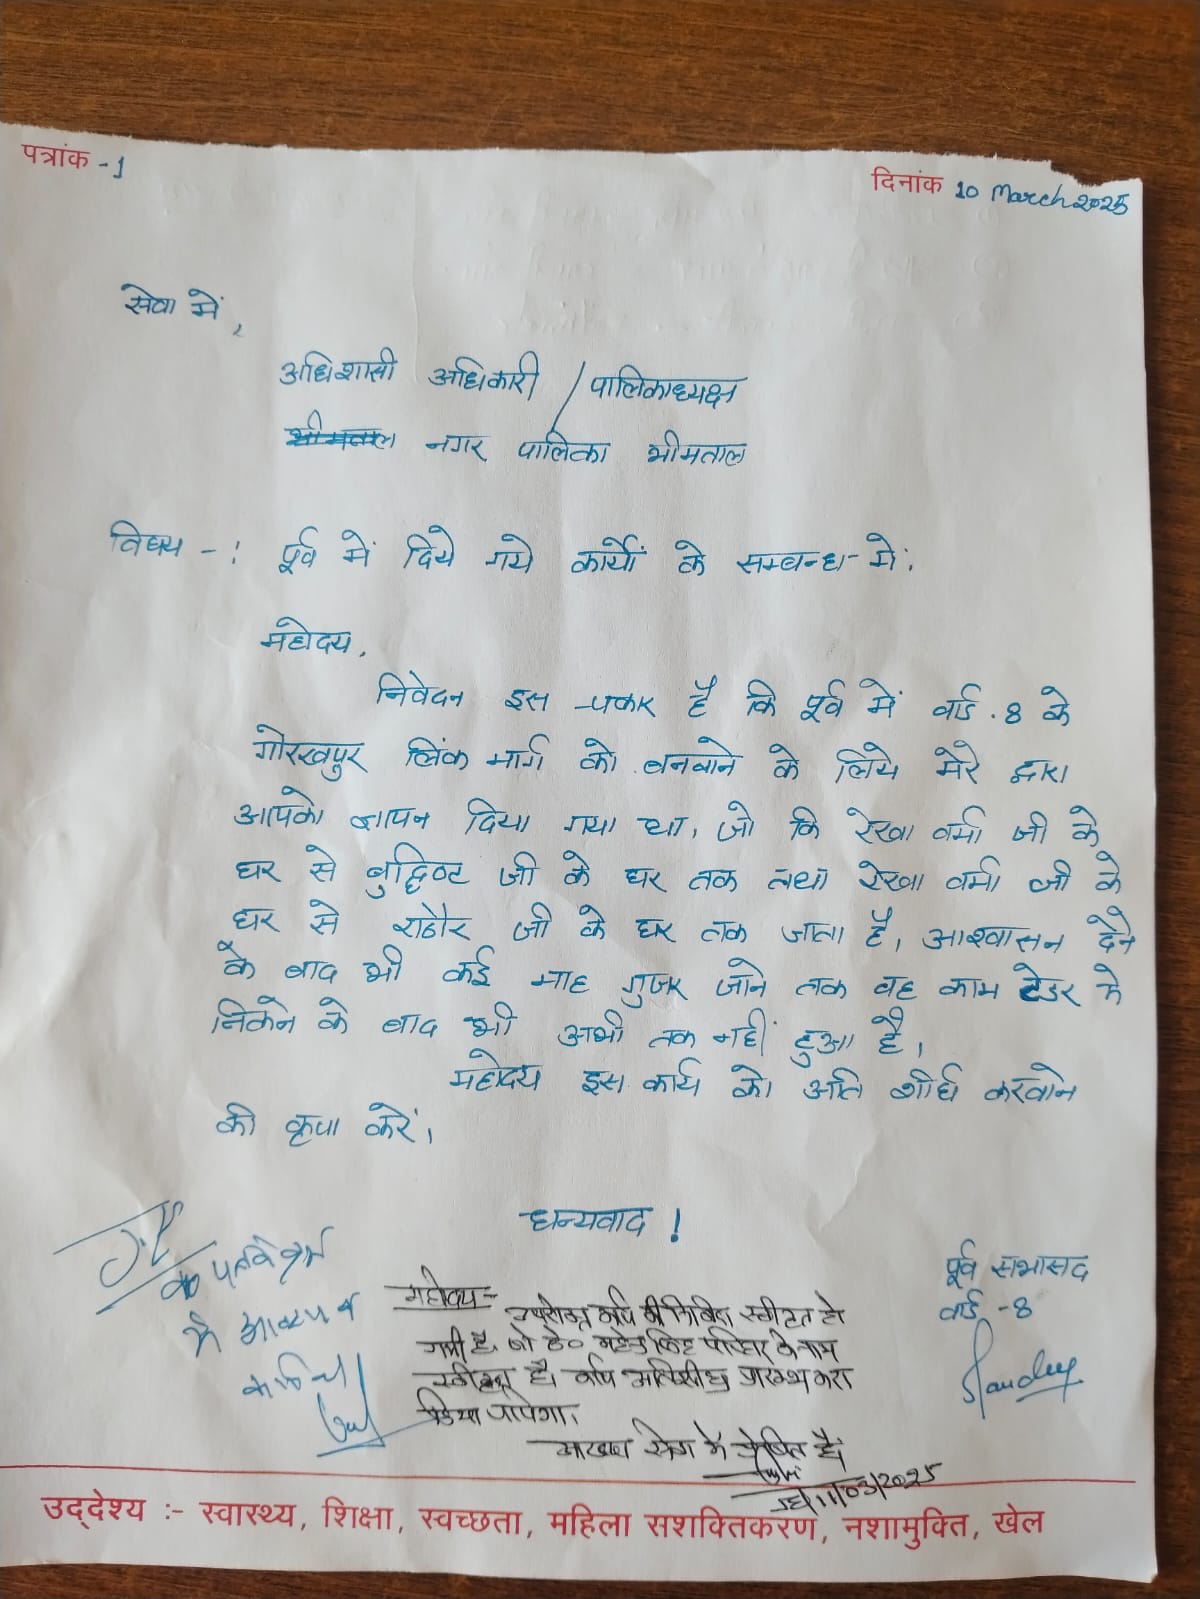 पत्रांक -1
दिनांक 10 March 2025
सेवा में,
अधिशासी अधिकारी / पालिकाध्यक्ष
नगर पालिका भीमताल
विषय -: पूर्व में दिये गये कार्यों के सम्बन्ध में:
महोदय,
निवेदन इस प्रकार है कि पूर्व में वार्ड.8 के
गोरखपुर लिंक मार्ग को बनवाने के लिये मेरे द्वारा
आपको ज्ञापन दिया गया था, जो कि रेखा वर्मा जी के
घर से जी के घर तक तथा रेखा वर्मा जी के
घर से राठौर जी के घर तक जाता है, आश्वासन देने
के बाद भी कई माह गुजर जाने तक वह काम टेडर के
के बाद भी अभी तक नहीं हुआ है,
महोदय इस कार्य को अति शीघ्र करवाने
की कृपा करें,
धन्यवाद !
पूर्व सभासद
वार्ड -8
महोदय-
उपरोक्त कार्य की निविदा स्वीकृत हो
गयी है, जो ठे० परिहार के नाम
स्वीकृत है। कार्य अतिशीघ्र प्रारम्भ करा
दिया जायेगा।
सेवा में प्रेषित है।
JE/11/03/2025
उद्देश्य :- स्वास्थ्य, शिक्षा, स्वच्छता, महिला सशक्तिकरण, नशामुक्ति, खेल